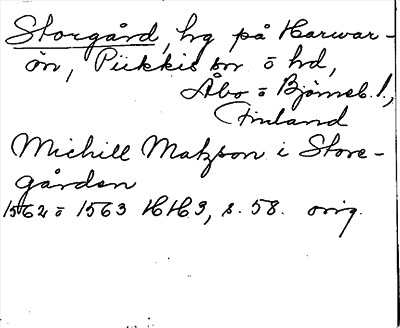 Storgård, hg på Harwar-
ön, Piikkis sn o hd,
Åbo o Björneb. l.,
Finland
Michill Matzson i Store-
gården
1562 o 1563 HH3, s. 58. orig.